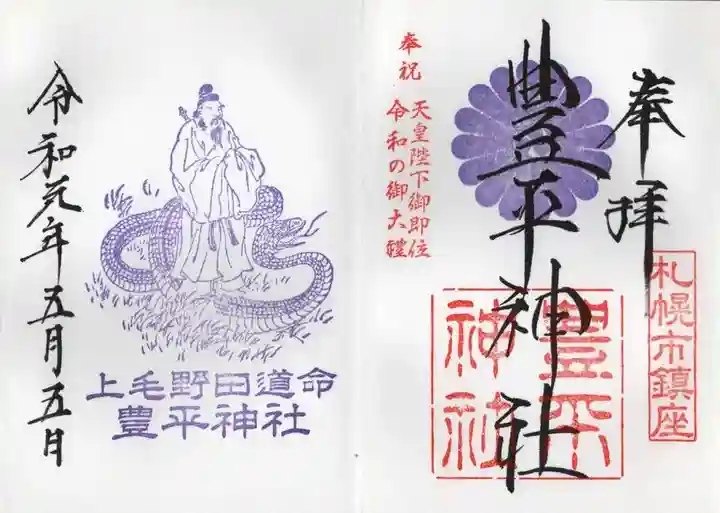 奉拝
札幌市鎮座
豊平神社
豊平
神社
奉祝
天皇陛下御即位
令和の御大禮
上毛野田道命
豊平神社
令和元年五月五日